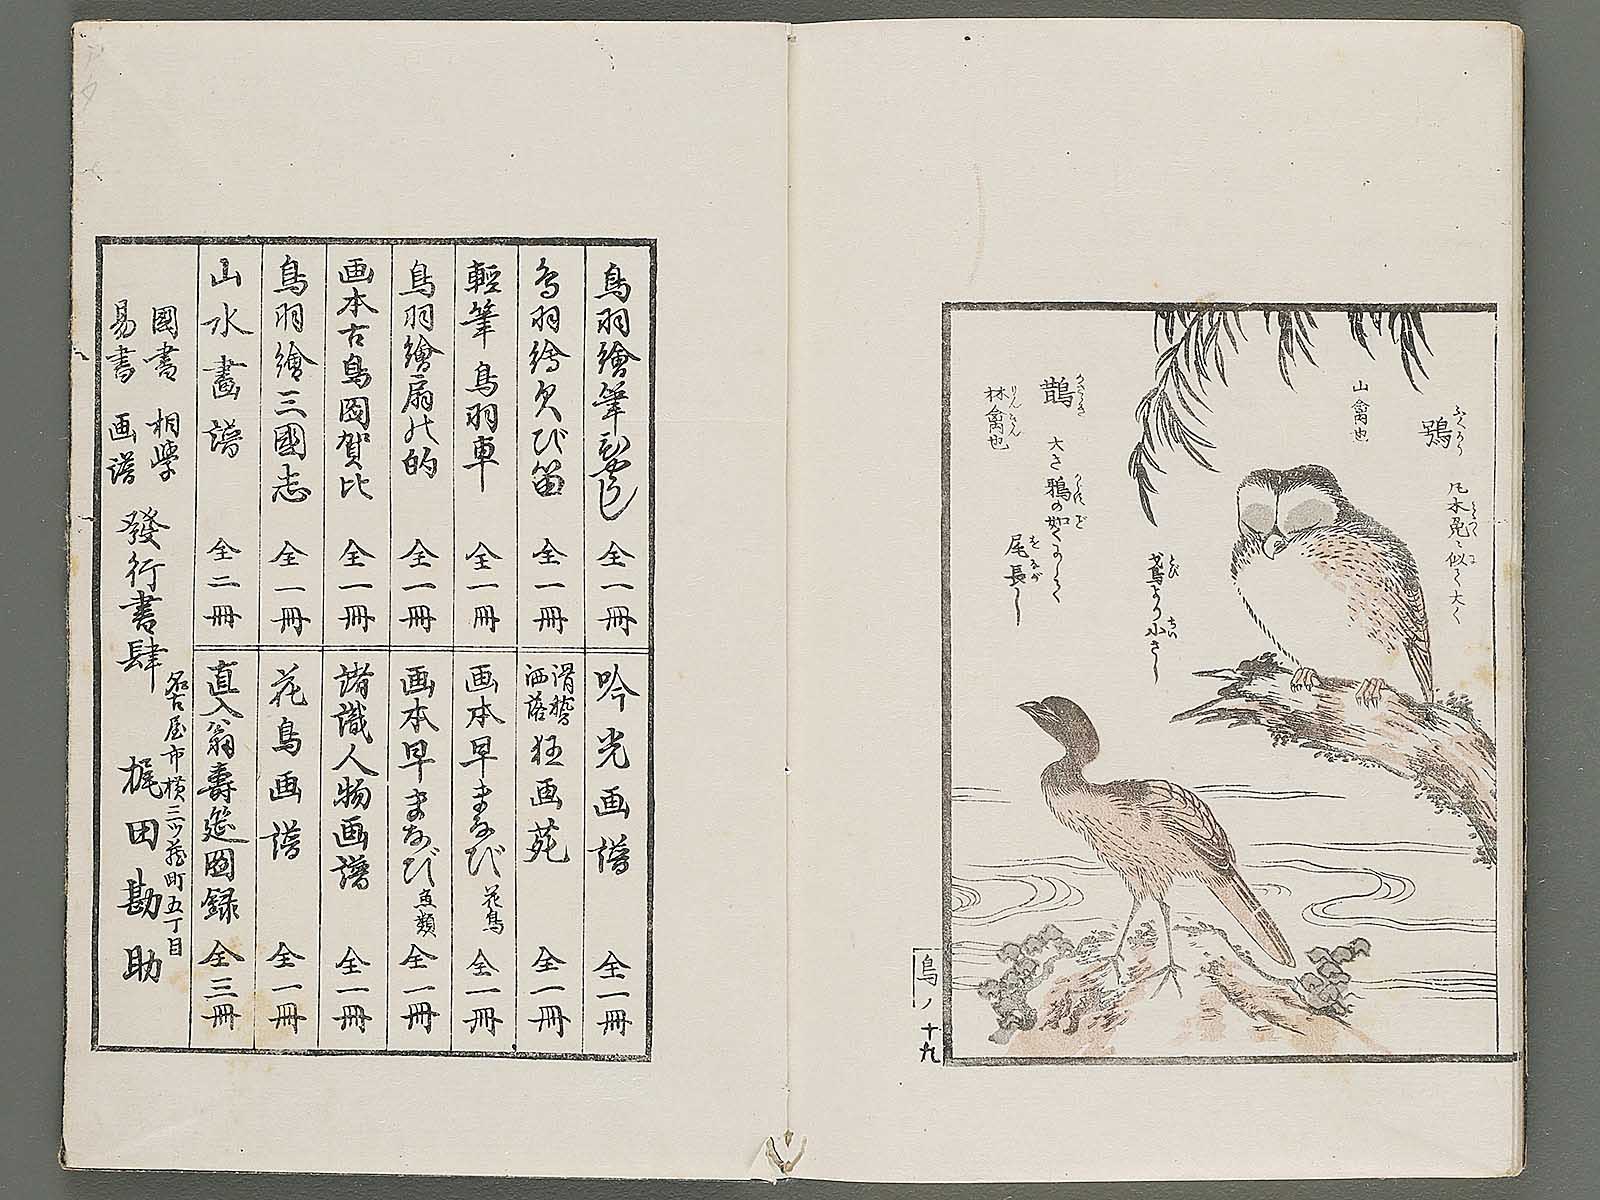 鴞
ふくろう
凡木兎ニ似て大く
山禽也
鳶より小さし
とび
ちい
鵲
かさゝぎ
林禽也
りんきん
大さ鴉の如くにして
尾長し
をなが
鳥ノ十九
鳥羽繪筆びやうし 全一冊
鳥羽繪欠び笛 全一冊
輕筆鳥羽車 全一冊
鳥羽繪扇の的 全一冊
画本古鳥図賀比 全一冊
鳥羽繪三國志 全一冊
山水畫譜 全二冊
吟光画譜 全一冊
滑稽洒落狂画苑 全一冊
画本早まなび 花鳥 全一冊
画本早まなび 魚類 全一冊
諸識人物画譜 全一冊
花鳥画譜 全一冊
直入翁壽筵圖録 全三冊
國書 相学
易書 画譜
發行書肆
名古屋市横三ツ蔵町五丁目
梶田勘助